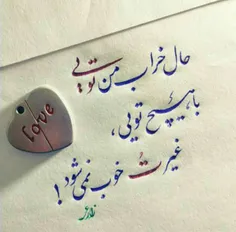 حال خراب من تویی
با هیچ تویی،
غیرتُ خوب نمی شود!
Love